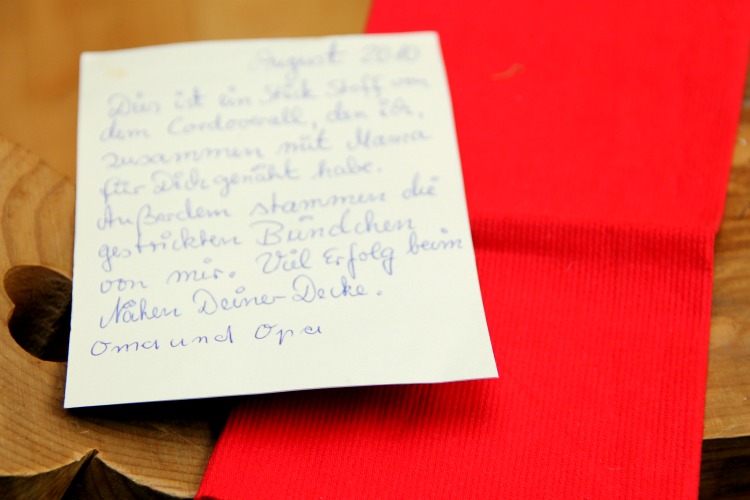 August 2010
Dies ist ein Stück Stoff von
dem Cordoverall, den ich,
zusammen mit Mama
für Dich genäht habe.
Außerdem stammen die
gestrickten Bündchen
von mir. Viel Erfolg beim
Nähen Deiner Decke.
Oma und Opa